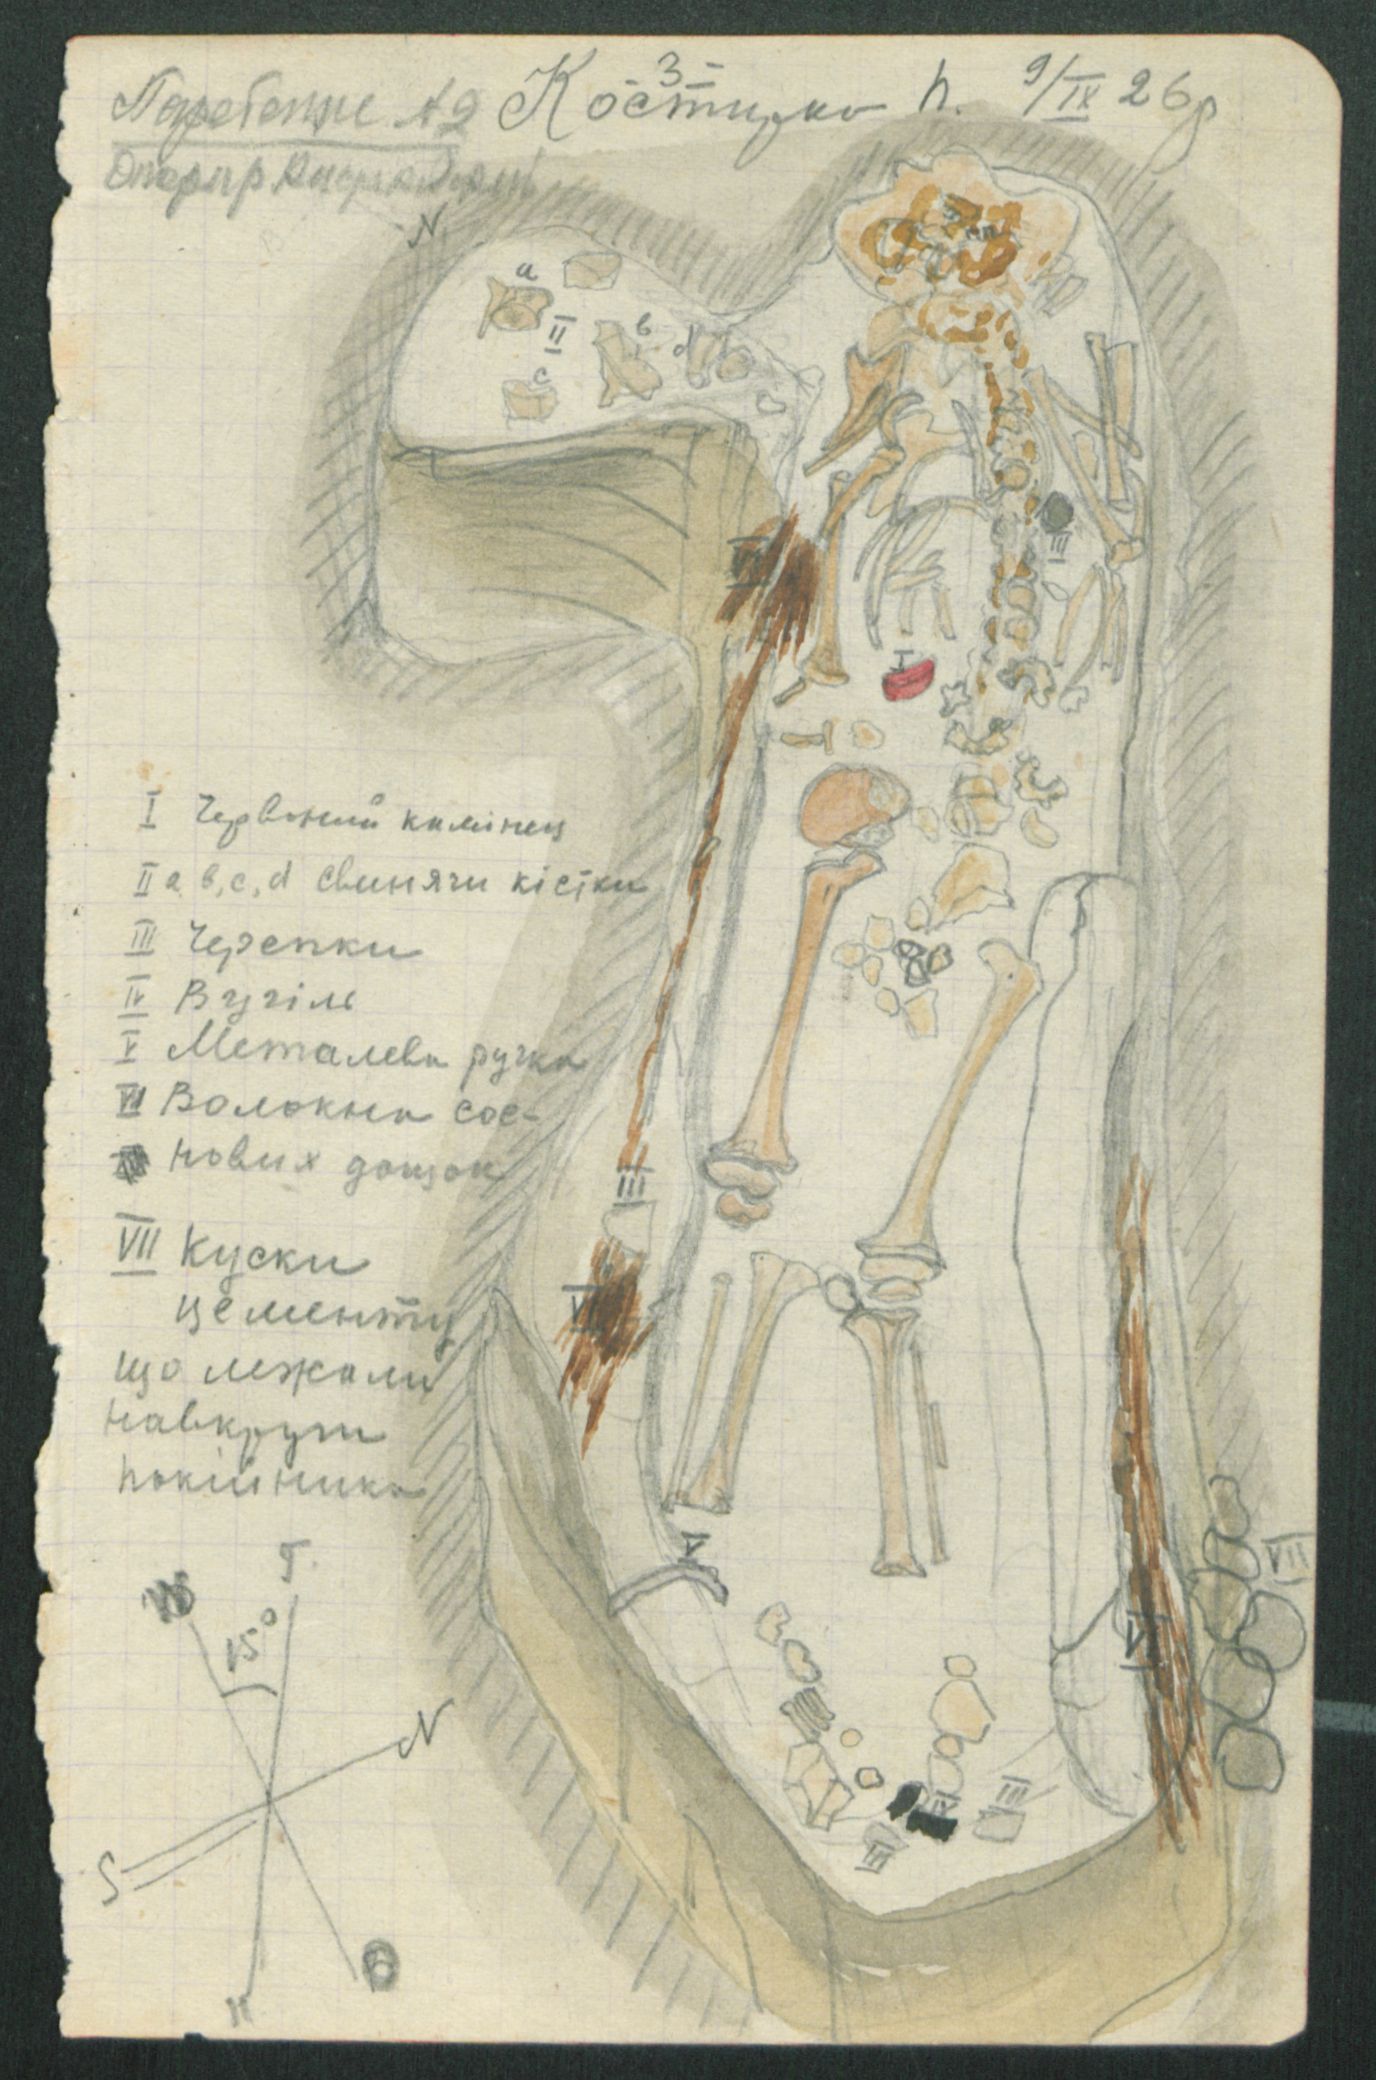 Погребение №2 Костирко п. 9/IX 26 р
3
N
a
II
в
d
c
III
I
I Червоний камінец
II a, в, c, d Свинячи кістки
III Черепки
IV Вугіль
V Металева ручка
VI Волокна сос-
нових дощок
III
VI
VII Куски
цементу
що лежали
навкруги
покійника
V
VII
15°
Г
VI
N
S
III
IV
III
О
Н